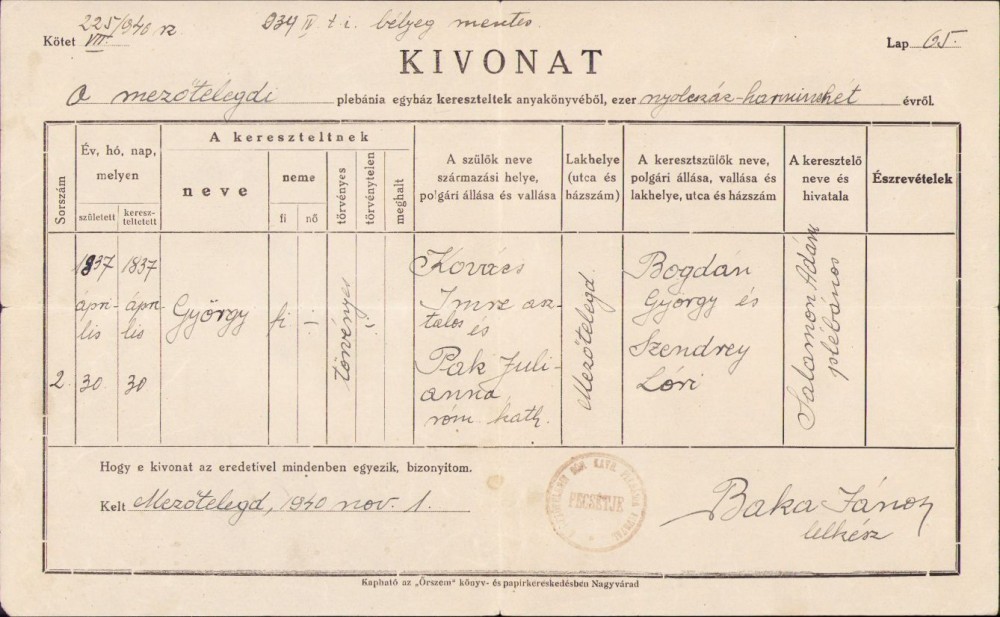 225/1940 sz
Kötet VII. 1934 IV t i. bélyeg mentes. Lap 65.
KIVONAT
a mezőtelegdi plebánia egyház kereszteltek anyakönyvéből, ezer nyolcszáz-harminchét évről.
Sorszám
Év, hó, nap, melyen
született
kereszteltetett
A kereszteltnek
neve
neme
fi
nő
törvényes
törvénytelen
meghalt
A szülők neve
származási helye,
polgári állása és vallása
Lakhelye
(utca és
házszám)
A keresztszülők neve,
polgári állása, vallása és
lakhelye, utca és házszám
A keresztelő
neve és
hivatala
Észrevételek
2.
1837
ápri-
lis
30
1837
ápri-
lis
30
György
fi
törvényes
Kovács
Imre asz-
talos és
Pak Juli-
anna
róm kath.
Mezőtelegd.
Bogdán
György és
Szendrey
Lóri
Salamon Ádám
plébános
Hogy e kivonat az eredetivel mindenben egyezik, bizonyitom.
Kelt Mezőtelegd, 1940 nov. 1.
PECSÉTJE
Baka János
lelkész
Kapható az „Őrszem” könyv- és papirkereskedésben Nagyvárad